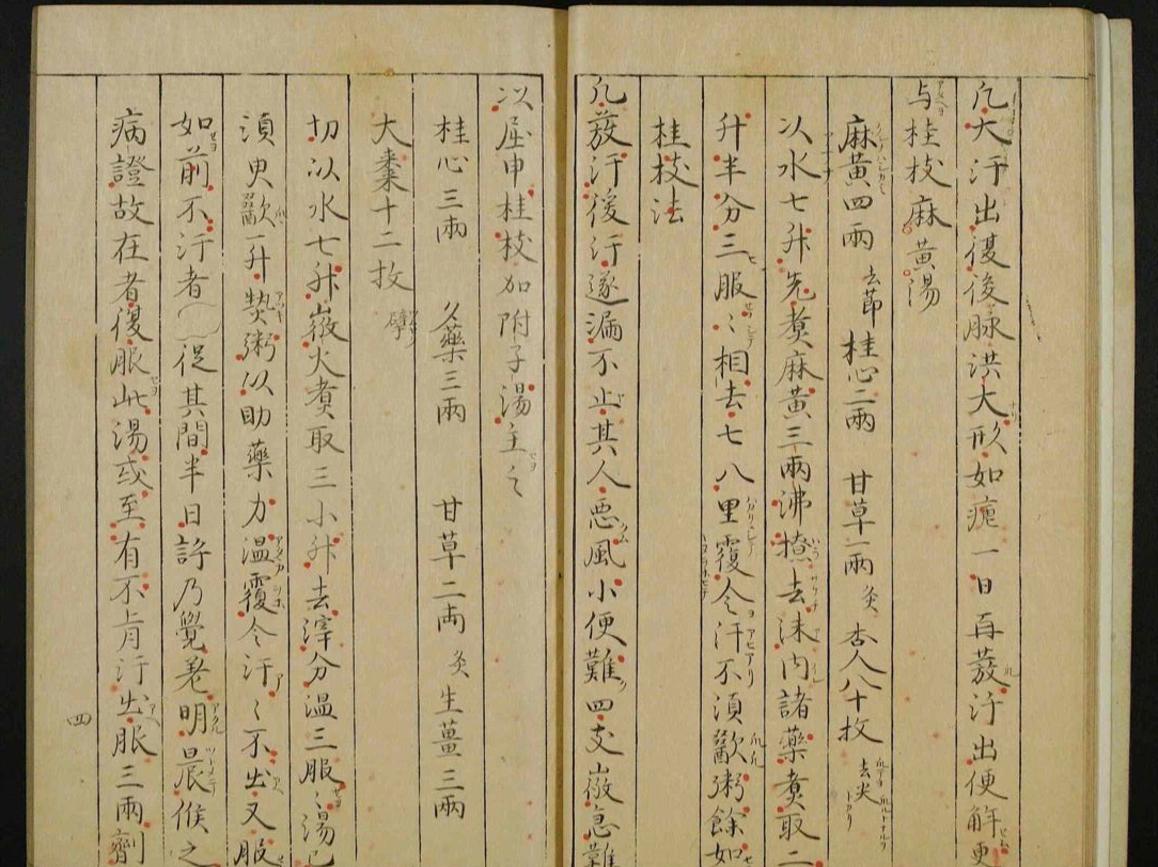 凡大汗出復後脉洪大形如瘧一日再發汗出便解更
与桂枝麻黄湯
麻黄四兩去節 桂心二兩 甘草一兩炙 杏人八十枚去尖
以水七升先煑麻黄三兩沸撩去沫内諸藥煑取二
升半分三服〻相去七八里覆令汗不湏歠粥餘如
桂枝法
凡發汗後汗遂漏不止其人惡風小便難四支微急難
以屈申桂枝加附子湯主之
桂心三兩 夕藥三兩 甘草二两炙 生薑三兩
大棗十二枚擘
切以水七升微火煑取三小升去滓分温三服〻湯已
湏臾歠一升𤍠粥以助藥力温覆令汗〻不出又服
如前不汗者促其間半日許乃覺老明晨候之
病證故在者復服此湯或至有不肯汗出服三兩劑
四